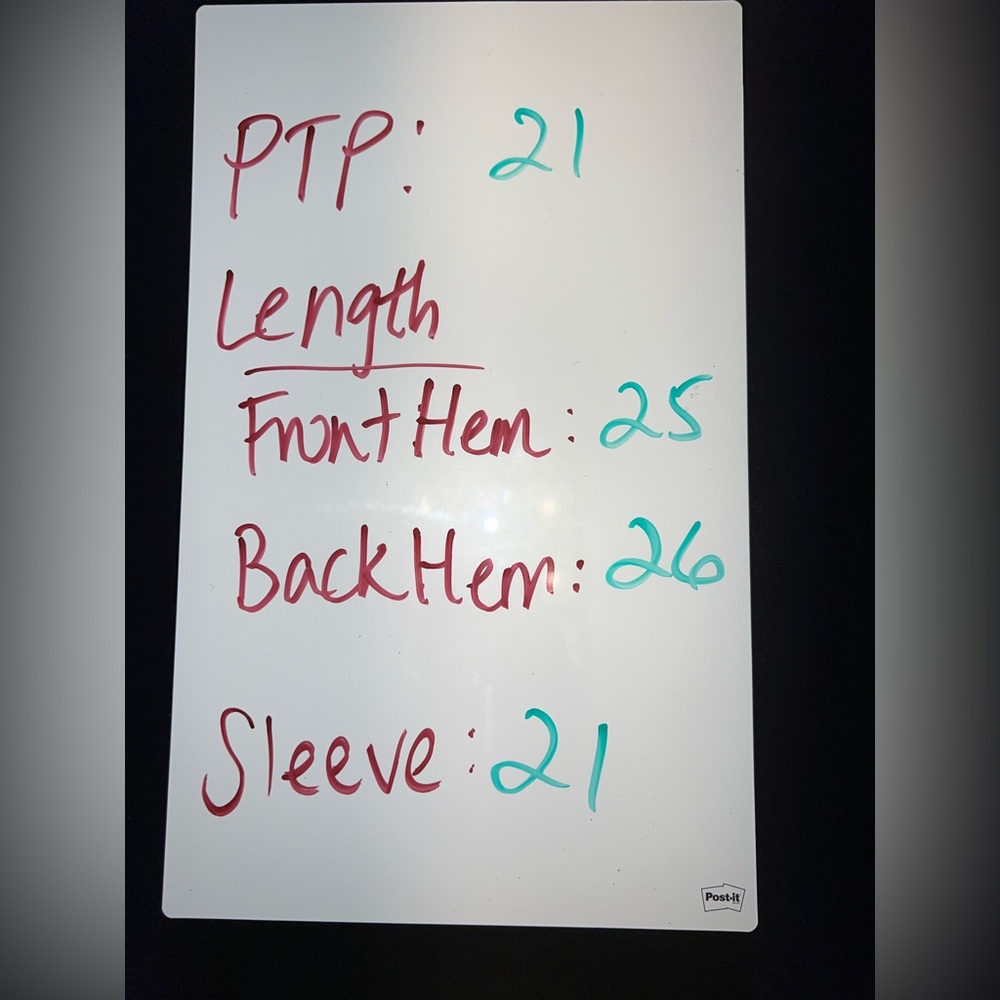 PTP: 21
Length
Front Hem: 25
Back Hem: 26
Sleeve: 21
Post-it